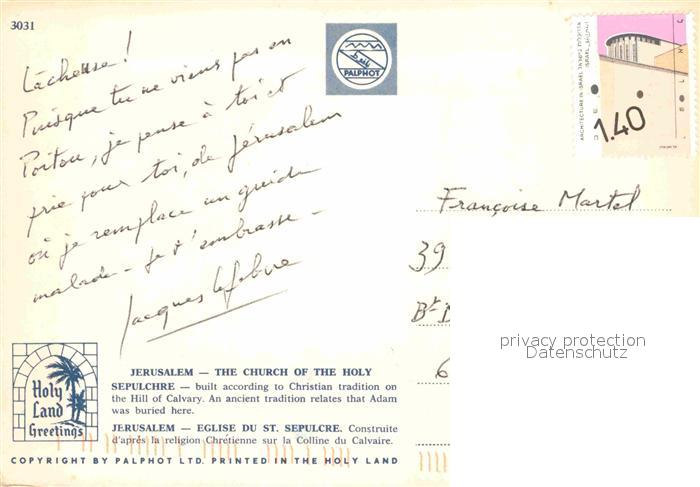 3031
Lâcheuse !
Puisque tu ne viens pas en
Poitou, je pense à toi et
prie pour toi, de Jérusalem
où je remplace un guide
malade - Je t'embrasse -
Jacques Lefebvre
PALPHOT
ARCHITECTURE IN ISRAEL
ISRAEL
1.40
Françoise Martel
39
Bt
6
privacy protection
Datenschutz
Holy
Land
Greetings
JERUSALEM — THE CHURCH OF THE HOLY
SEPULCHRE — built according to Christian tradition on
the Hill of Calvary. An ancient tradition relates that Adam
was buried here.
JERUSALEM — EGLISE DU ST. SEPULCRE. Construite
d'après la religion Chrétienne sur la Colline du Calvaire.
COPYRIGHT BY PALPHOT LTD. PRINTED IN THE HOLY LAND